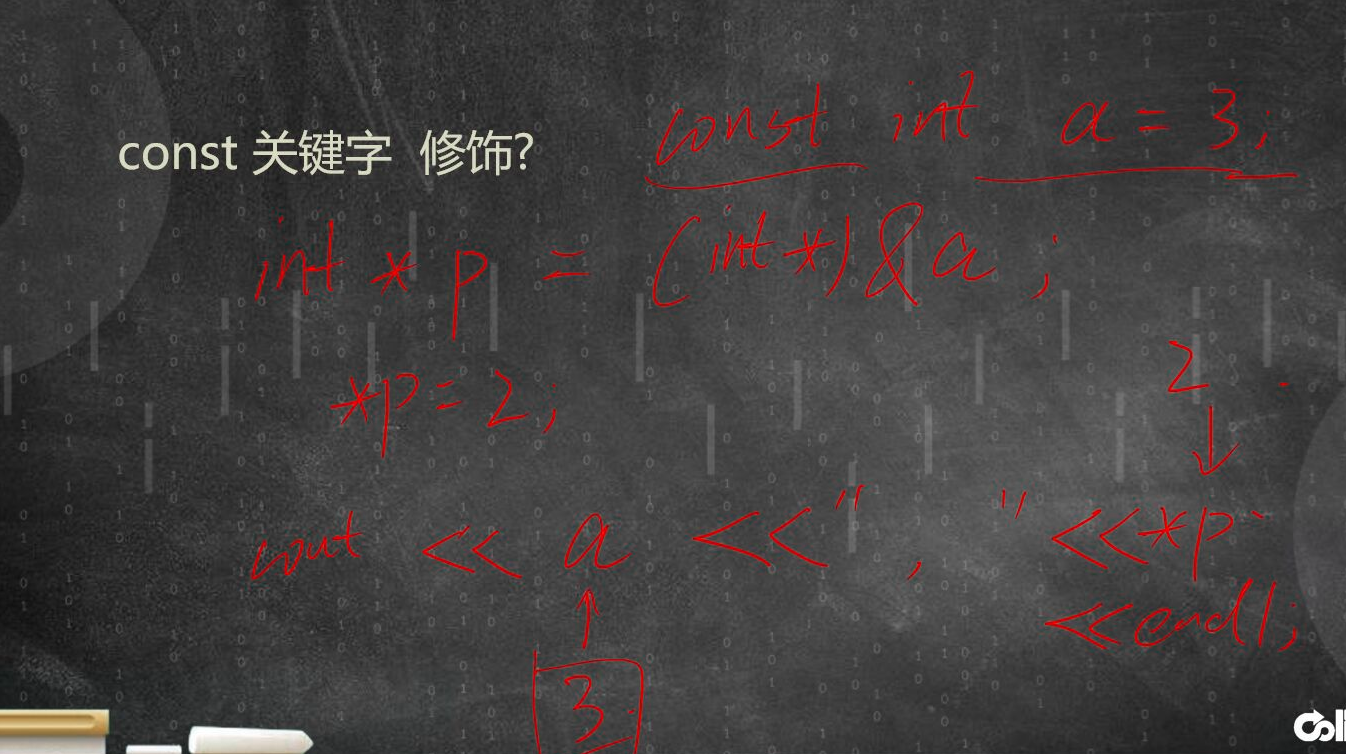 const 关键字 修饰?
const int a = 3;
int * p = (int *) & a ;
2
*p = 2;
cout << a << " , " << *p
<< endl;
3